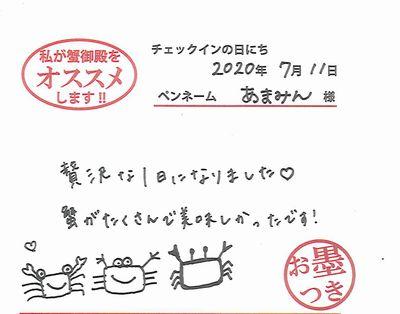 私が蟹御殿を
オススメ
します!!
チェックインの日にち
2020年 7月 11日
ペンネーム あまみん 様
贅沢な1日になりました♡
蟹がたくさんで美味しかったです!
お墨
つき